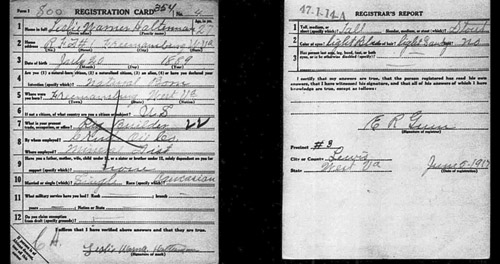 Form 1 800 REGISTRATION CARD 354 No. 4
1 Name in full Leslie Warner Halterman Age, in yrs. 27
(Given name) (Family name)
2 Home Address R F D #1 Freemansburg W Va
(No.) (Street) (City) (State)
3 Date of birth July 20 1889
(Month) (Day) (Year)
4 Are you (1) a natural-born citizen, (2) a naturalized citizen, (3) an alien, (4) or have you declared your
intention (specify which)? Natural Born
5 Where were you born? Freemansburg West Va
(Town) (State) (Nation)
6 If not a citizen, of what country are you a citizen or subject? U S
7 What is your present trade, occupation, or office? Rig Builder 22
8 By whom employed? Oil Co.
Where employed? Dist
9 Have you a father, mother, wife, child under 12, or a sister or brother under 12, solely dependent on you for
support (specify which)? None
10 Married or single (which)? Single Race (specify which)? Caucasian
11 What military service have you had? Rank ; branch
years ; Nation or State
12 Do you claim exemption from draft (specify grounds)?
I affirm that I have verified above answers and that they are true.
Leslie Warner Halterman
(Signature or mark)
47-1-14-A
REGISTRAR'S REPORT
1 Tall, medium, or short (specify which)? Tall Slender, medium, or stout (which)? Stout
2 Color of eyes? Light Blue Color of hair? Light Sandy Bald? No
3 Has person lost arm, leg, hand, foot, or both
I certify that my answers are true, that the person registered has read his own
answers, that I have witnessed his signature, and that all of his answers of which I have
knowledge are true, except as follows:
E R Gum
(Signature of registrar)
Precinct #3
City or County Lewis
State West Va June 5-1917
(Date of registration)